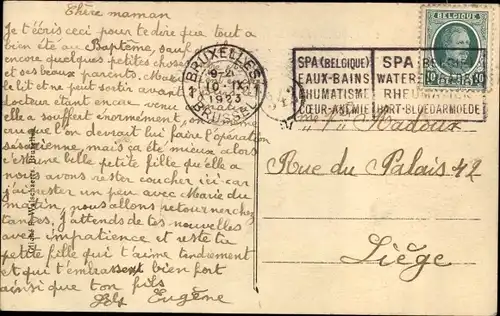 Chère maman
Je t'écris ceci pour te dire que tout a
bien été au Baptême, sauf
encore quelques petites choses
et ses beaux parents. Marie
le lit et ne peut sortir avant
docteur étant encore venu
elle a souffert énormément, on
que l'on devrait lui faire l'opération
césarienne, mais ça été mieux alors
c'est une bille petite fille qu'elle a
nous avons rester coucher ici car
j'ai rester un peu avec Marie du
martin, nous allons retourner chez
tantes, j'attends de tes nouvelles
avec impatience et reste ta
petite fille qui t'aime tendrement
et qui t'embrassent bien fort
ainsi que ton fils
Eugène
BRUXELLES
1923
BRUSSEL
SPA (BELGIQUE)
EAUX-BAINS
RHUMATISME
CŒUR-ANÉMIE
SPA BELGIE
WATER
RHEU
HART-BLOEDARMOEDE
BELGIQUE
10 10
Mme Vve Hadoux
Rue du Palais 42
Liège